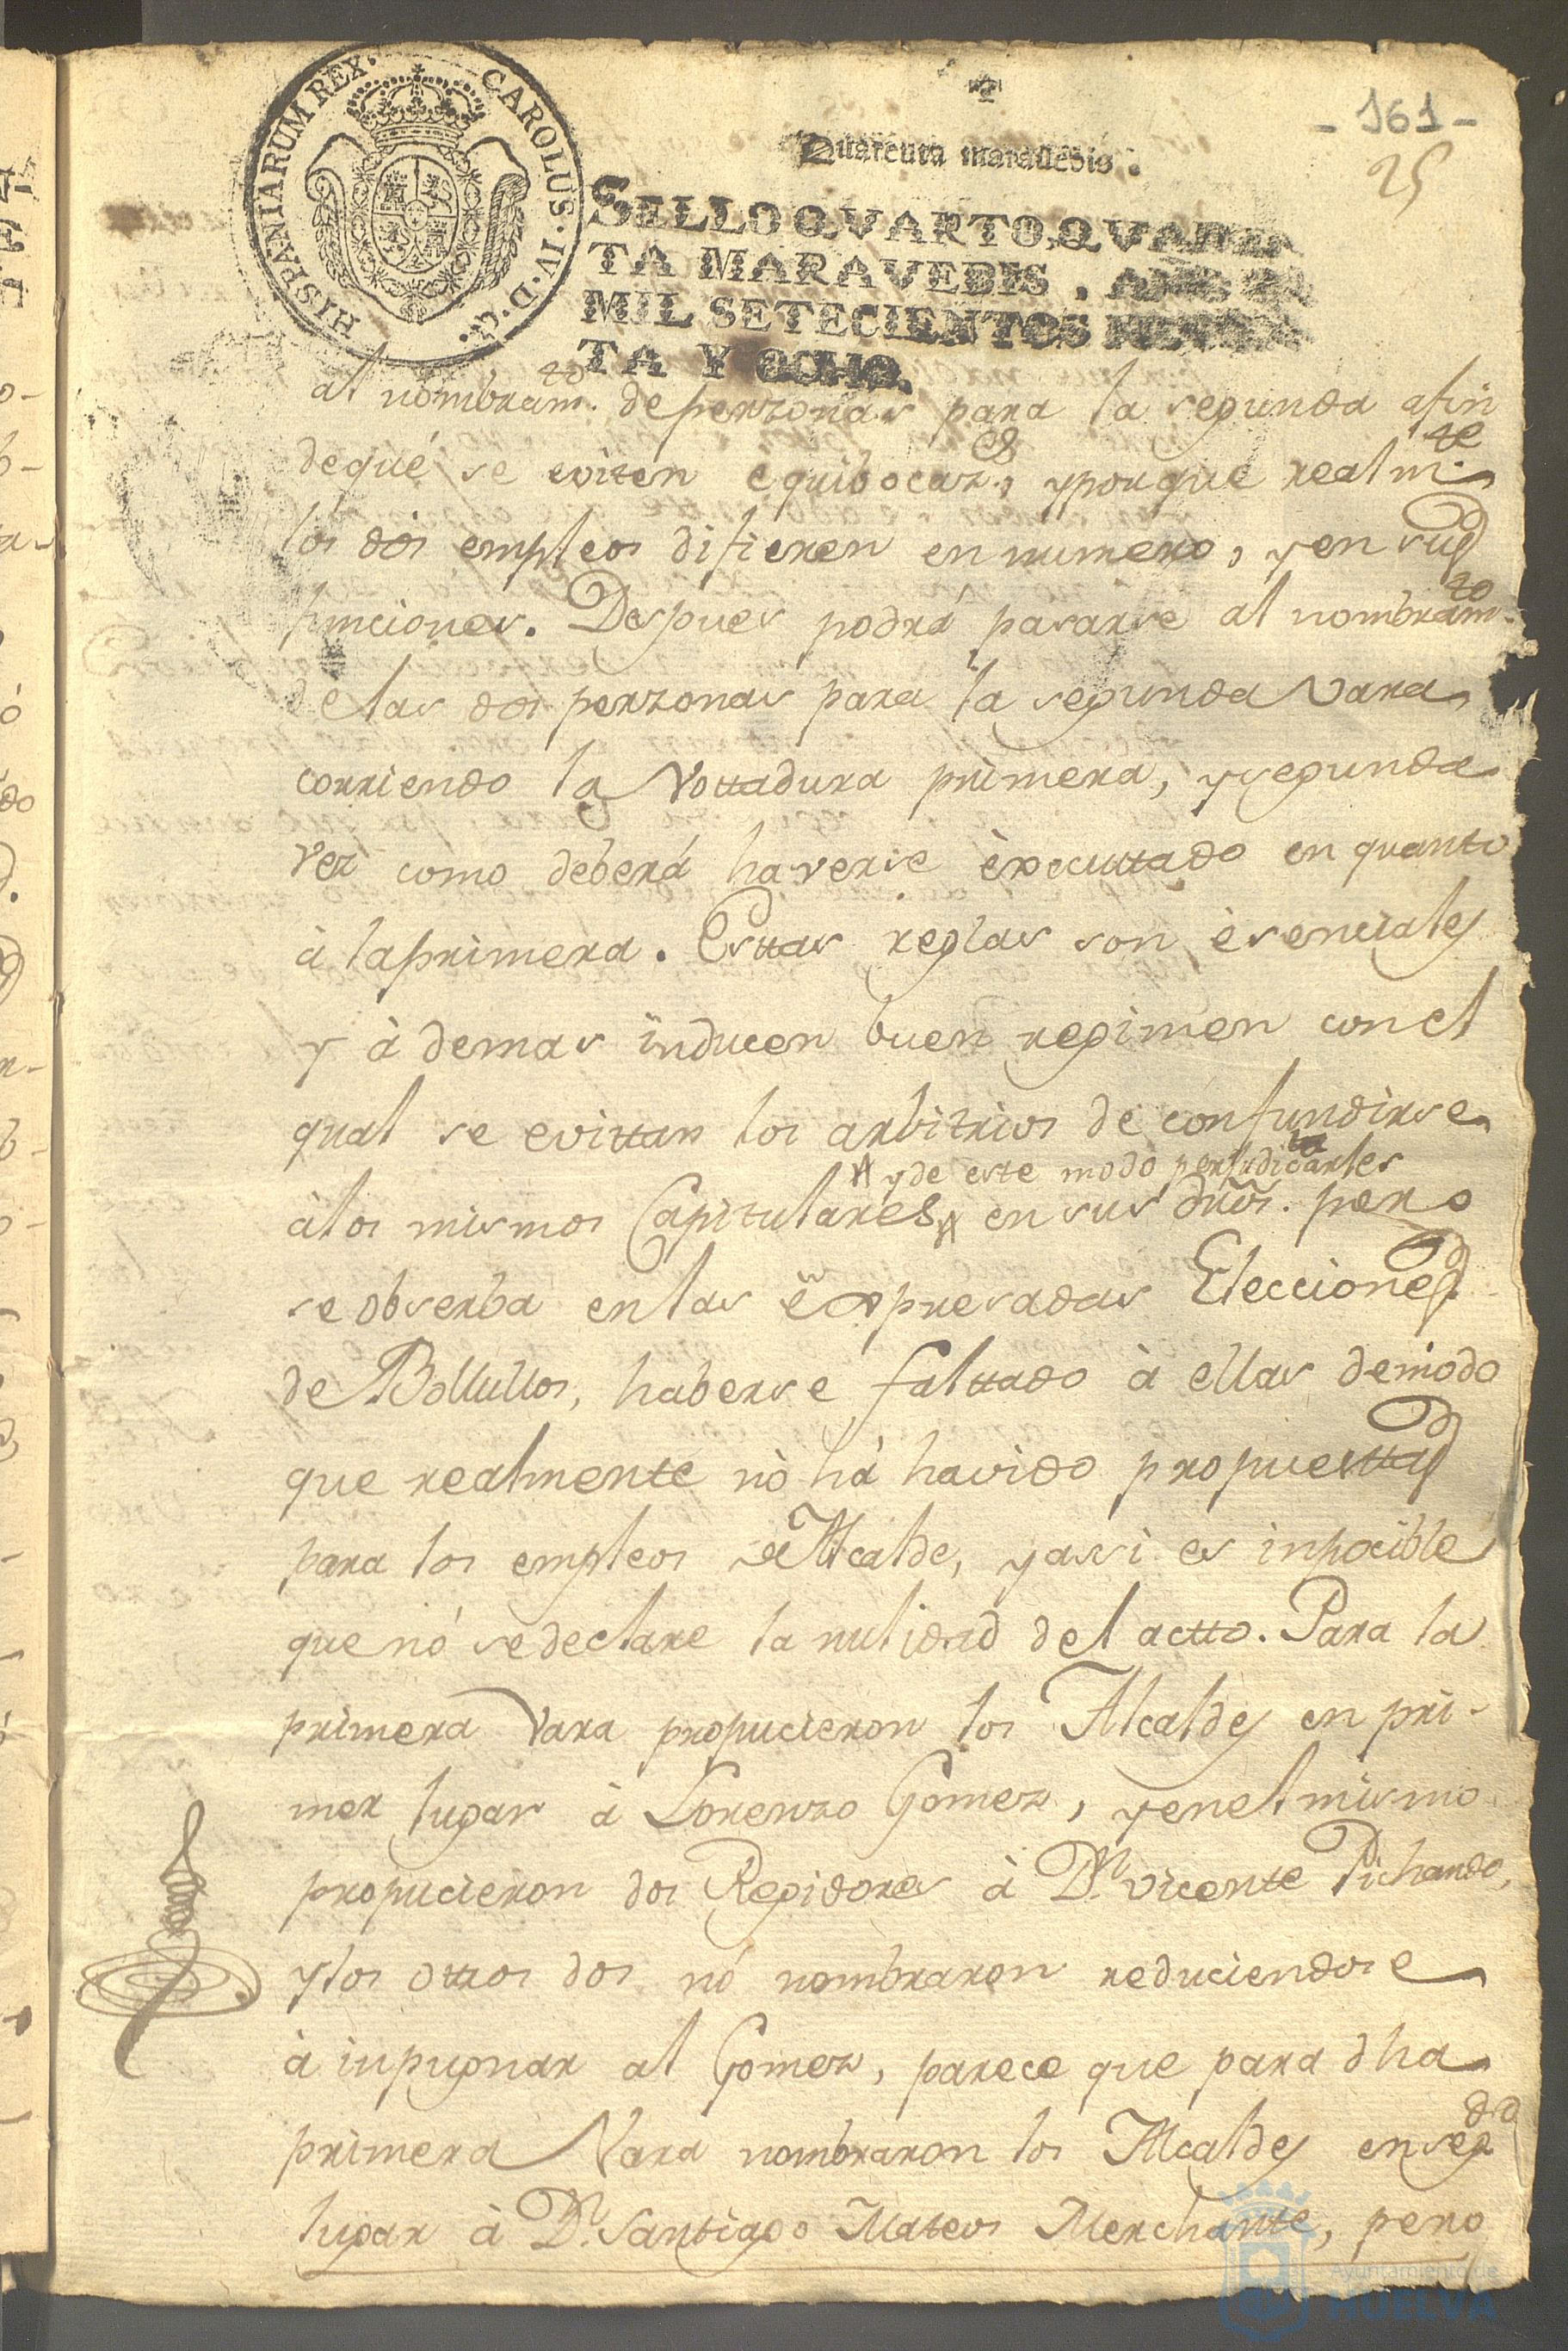 HISPANIARUM REX. CAROLUS. IV. D. G.
- 161 -
25
Quarenta maravedis.
SELLO QVARTO, QVAREN
TA MARAVEDIS, AÑO DE
MIL SETECIENTOS NOVEN
TA Y OCHO.
al nombram.to de perzonas para la segunda afin
dequé se eviten equibocaz.es, y porque realm.te
los dos empleos difieren en numero, y en sus
funciones. Despues podrá pasarse al nombram.to
de las dos perzonas para la segunda vara
corriendo la Vottadura primera, y segunda
vez como deberá haverse èxecuttado en quanto
à la primera. Esttas reglas son èsenciales
y à demas inducen buen regimen con el
qual se evittan los arbitrios de confundirse
y de este modo perjudicarles
àlos mismos Capitulares en sus dr̃os. pero
se obserba en las expresadas Elecciones
de Bollullos, haberse falttado à ellas demodo
que realmente nò há havido propuesttas
para los empleos de Alcalde, y assi es inpocible
que nó se declare la nulidad del actto. Para la
primera Vara propucieron los Alcaldes en pri-
mer lugar à Lorenzo Gomez, y en el mismo
propucieron dos Regidores à D.n Vicente Pichardo,
y los ottros dos nó nombraron reduciendose
à inpugnar al Gomez, parece que para dha
primera Vara nombraron los Alcaldes en seg.do
lugar à D.n Santiago Mateos Merchante, pero
Ayuntamiento de
HUELVA